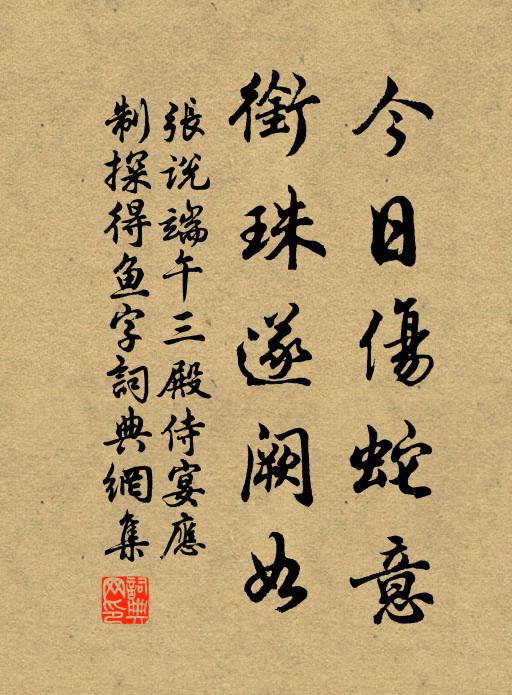 今日傷蛇意
銜珠遂闕如
張說端午三殿侍宴應
制探得魚字詞典網集
詞典
网印